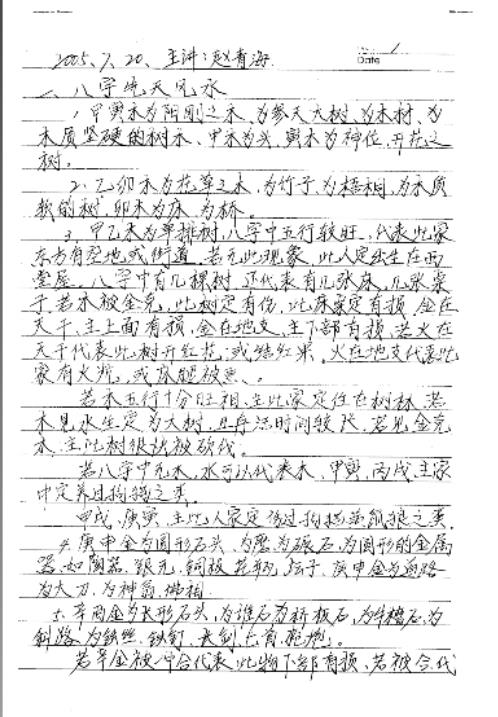 No. 1
Date
2005.7.20、主讲:赵青海
一、八字论天风水
1、甲寅木为阳刚之木、为参天大树、为木材、为
木质坚硬的树木、甲木为头、寅木为神位、开花之
树。
2、乙卯木为花草之木、为竹子、为梧桐、为木质
软的树、卯木为床、为桥。
3、甲乙木为单排树、八字中五行较旺、代表此家
东方有空地或街道、若无此现象、此人定出生在西
堂屋。八字中有几棵树、还代表有几张床、几张桌
子、若木被金克、此树定有伤、此床桌定有损、金在
天干、主上面有损、金在地支、主下部有损、若火在
天干代表此树开红花、或结红果、火在地支代表此
家有火炕、或床腿被
若木五行十分旺相、主此家定住在树林、若
木见水生定为大树、且存活时间较长、若见金克
木、主此树很快被砍伐。
若八字中无木、水可以代表木、甲寅、丙戌、主家
中定养过狗猫之类。
甲戌、庚寅、主此人家定伤过狗猫黄鼠狼之类。
4、庚申金为圆形石头、为磨、为碾石、为圆形的金属
器、如陶器、银元、铜板、花瓶、坛子、庚申金为道路
为大刀、为神翁、佛相
5、辛酉金为长形石头、为碓石、为桥板石、为牛槽石、为
斜路、为铁丝、铁钉、长剑、
若辛金被 合代表、此物下部有损、若被合代